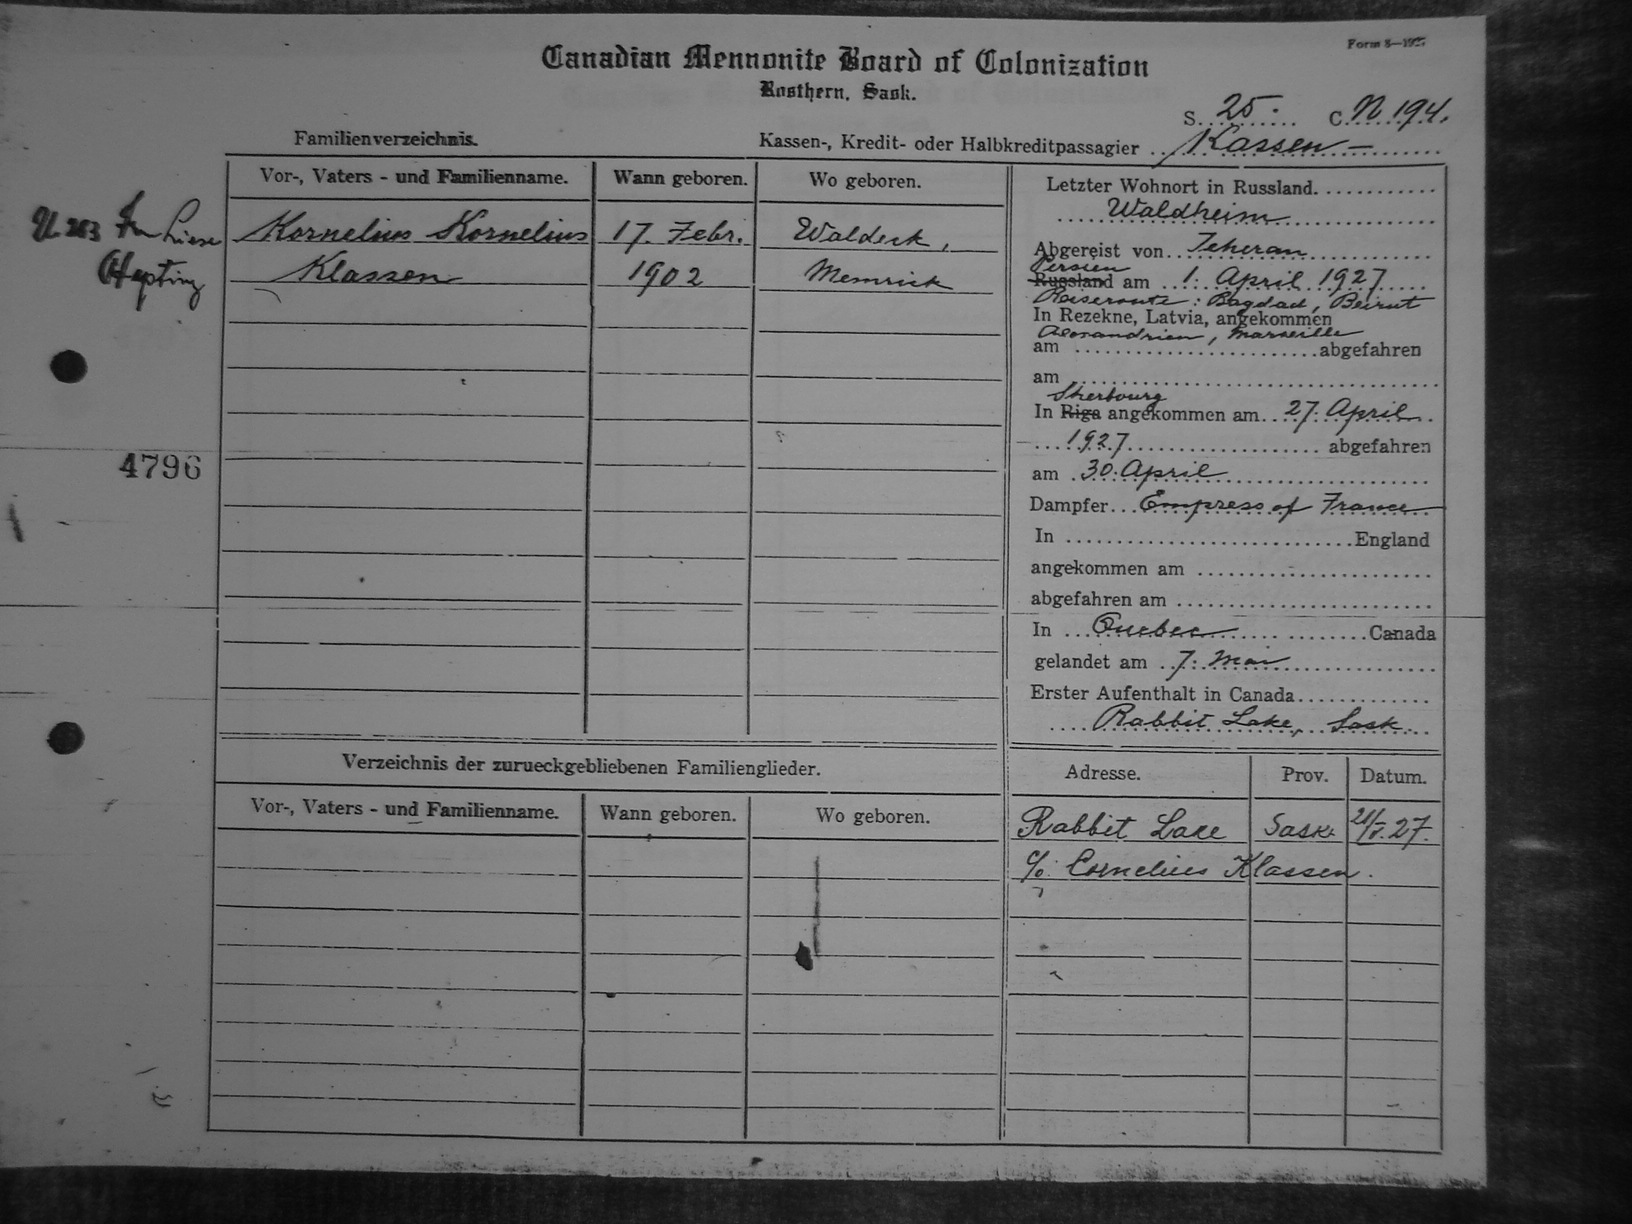 Form 8—1927
Canadian Mennonite Board of Colonization
Rosthern, Sask.
S. 25. C. N 194.
Familienverzeichnis.
Kassen-, Kredit- oder Halbkreditpassagier Kassen —
Vor-, Vaters - und Familienname. Wann geboren. Wo geboren.
Kornelius Kornelius 17. Febr. Waldeck,
Klassen 1902 Memrick
263
4796
Letzter Wohnort in Russland
Waldheim
Abgereist von Teheran
Persien
Russland am 1. April 1927
Reiseroute: Bagdad, Beirut
In Rezekne, Latvia, angekommen
Alexandrien, Marseille
am abgefahren
am
Sherbourg
In Riga angekommen am 27. April
1927 abgefahren
am 30. April
Dampfer Empress of France
In England
angekommen am
abgefahren am
In Quebec Canada
gelandet am 7. Mai
Erster Aufenthalt in Canada
Rabbit Lake, Sask.
Verzeichnis der zurueckgebliebenen Familienglieder.
Vor-, Vaters - und Familienname. Wann geboren. Wo geboren.
Adresse. Prov. Datum.
Rabbit Lake Sask. 27.
c/o. Cornelius Klassen.